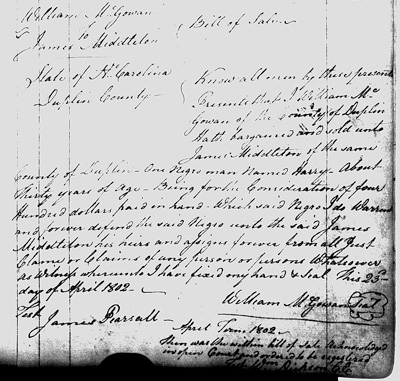 William McGowan
to
James Middleton
Bill of Sale
State of No Carolina
Duplin County
Know all men by these presents
Presents that I William Mc
Gowan of the County of Duplin
Hath bargained and sold unto
James Middleton of the same
County of Duplin - One Negro man Named Harry - About
Thirty years of Age - Being for the Consideration of four
Hundred dollars paid in hand - Which said Negro I do Warrant
and forever defend the said Negro unto the said James
Middleton his heirs and assigns forever from all Just
Claim or Claims of any person or persons Whatsoever
as Witness whereunto I have fixed my hand & Seal This 23
day of April 1802
William McGowan Seal
Test
James Pearsall
April Term 1802
Then was the within bill of Sale Acknowledged
in open Court and ordered to be registered
Dickson